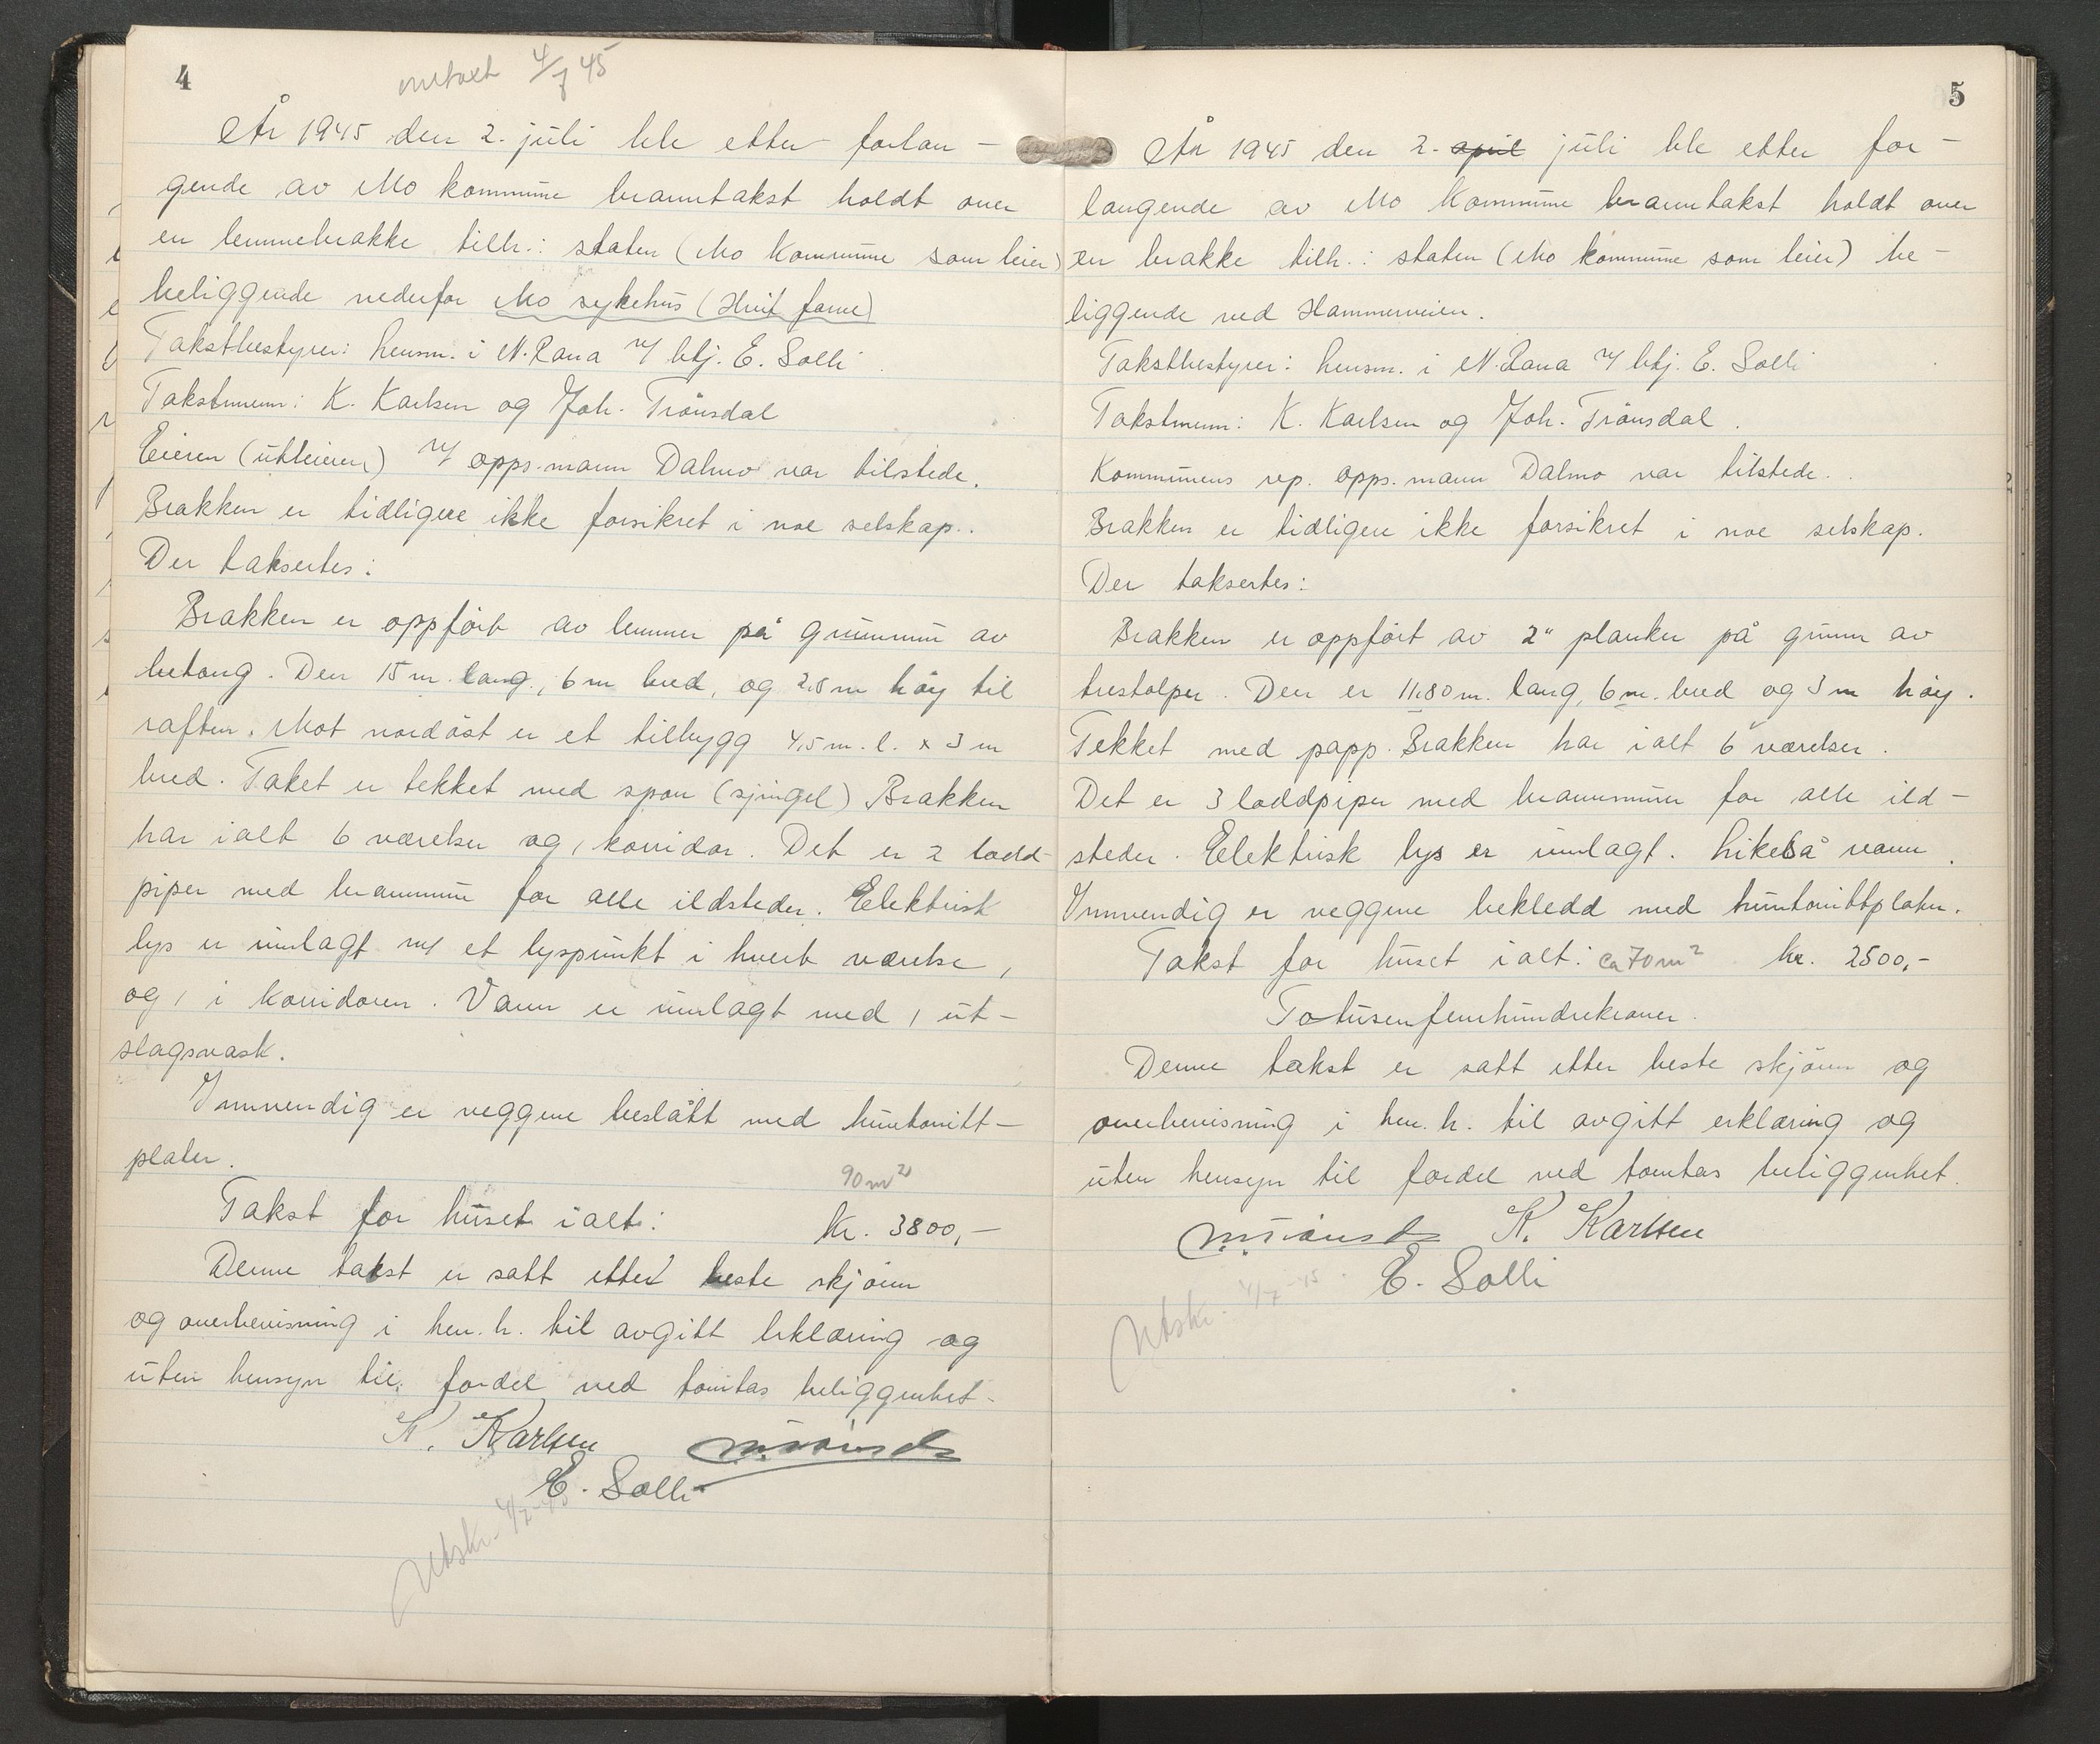 4
4/7 45
År 1945 den 2. juli ble etter forlan-
gende av Mo kommune branntakst holdt over
en lemmebrakke tilh.: staten (Mo Kommune som leier)
beliggende nedenfor Mo sykehus (Hvit farve)
Takstbestyrer: lensm. i N. Rana v/ btj. E. Solli
Takstmenn: K. Karlsen og Joh. Trånsdal
Eieren (utleieren) v/ opps.mann Dalmo var tilstede.
Brakken er tidligere ikke forsikret i noe selskap.
Der taksertes:
Brakken er oppført av lemmer på grunnmur av
betong. Den 15 m. lang, 6 m bred, og 2,8 m høy til
raften. Mot nordøst er et tilbygg 4,5 m. l. x 3 m
bred. Taket er tekket med spon (sjingel) Brakken
har ialt 6 værelser og 1 korridor. Det er 2 lodd-
piper med brannmur for alle ildsteder. Elektrisk
lys er innlagt m/ et lyspunkt i hvert værelse,
og 1 i korridoren. Vann er innlagt med 1 ut-
slagsvask.
Innvendig er veggene beslått med huntonitt-
plater.
90 m²
Takst for huset ialt: Kr. 3800,-
Denne takst er satt etter beste skjønn
og overbevisning i hen. h. til avgitt erklæring og
uten hensyn til fordel ved tomtas beliggenhet.
K. Karlsen
E. Solli
Utskr. 4/7-45
5
År 1945 den 2. april juli ble etter for-
langende av Mo Kommune branntakst holdt over
en brakke tilh.: staten (Mo kommune som leier) be-
liggende ved Hammerveien.
Takstbestyrer: lensm. i N. Rana v/ btj. E. Solli
Takstmenn: K. Karlsen og Joh. Trånsdal.
Kommunens rep. opps.mann Dalmo var tilstede.
Brakken er tidligere ikke forsikret i noe selskap.
Der taksertes:
Brakken er oppført av 2" planker på grunn av
trestolper. Den er 11,80 m. lang, 6 m. bred og 3 m høy.
Tekket med papp. Brakken har ialt 6 værelser.
Det er 3 loddpiper med brannmur for alle ild-
steder. Elektrisk lys er innlagt. Likeså vann.
Innvendig er veggene bekledd med huntonittplater.
Takst for huset ialt: ca 70 m² kr. 2500,-
Totusenfemhundrekroner.
Denne takst er satt etter beste skjønn og
overbevisning i hen. h. til avgitt erklæring og
uten hensyn til fordel ved tomtas beliggenhet.
K. Karlsen
E. Solli
Utskr. 4/7-45